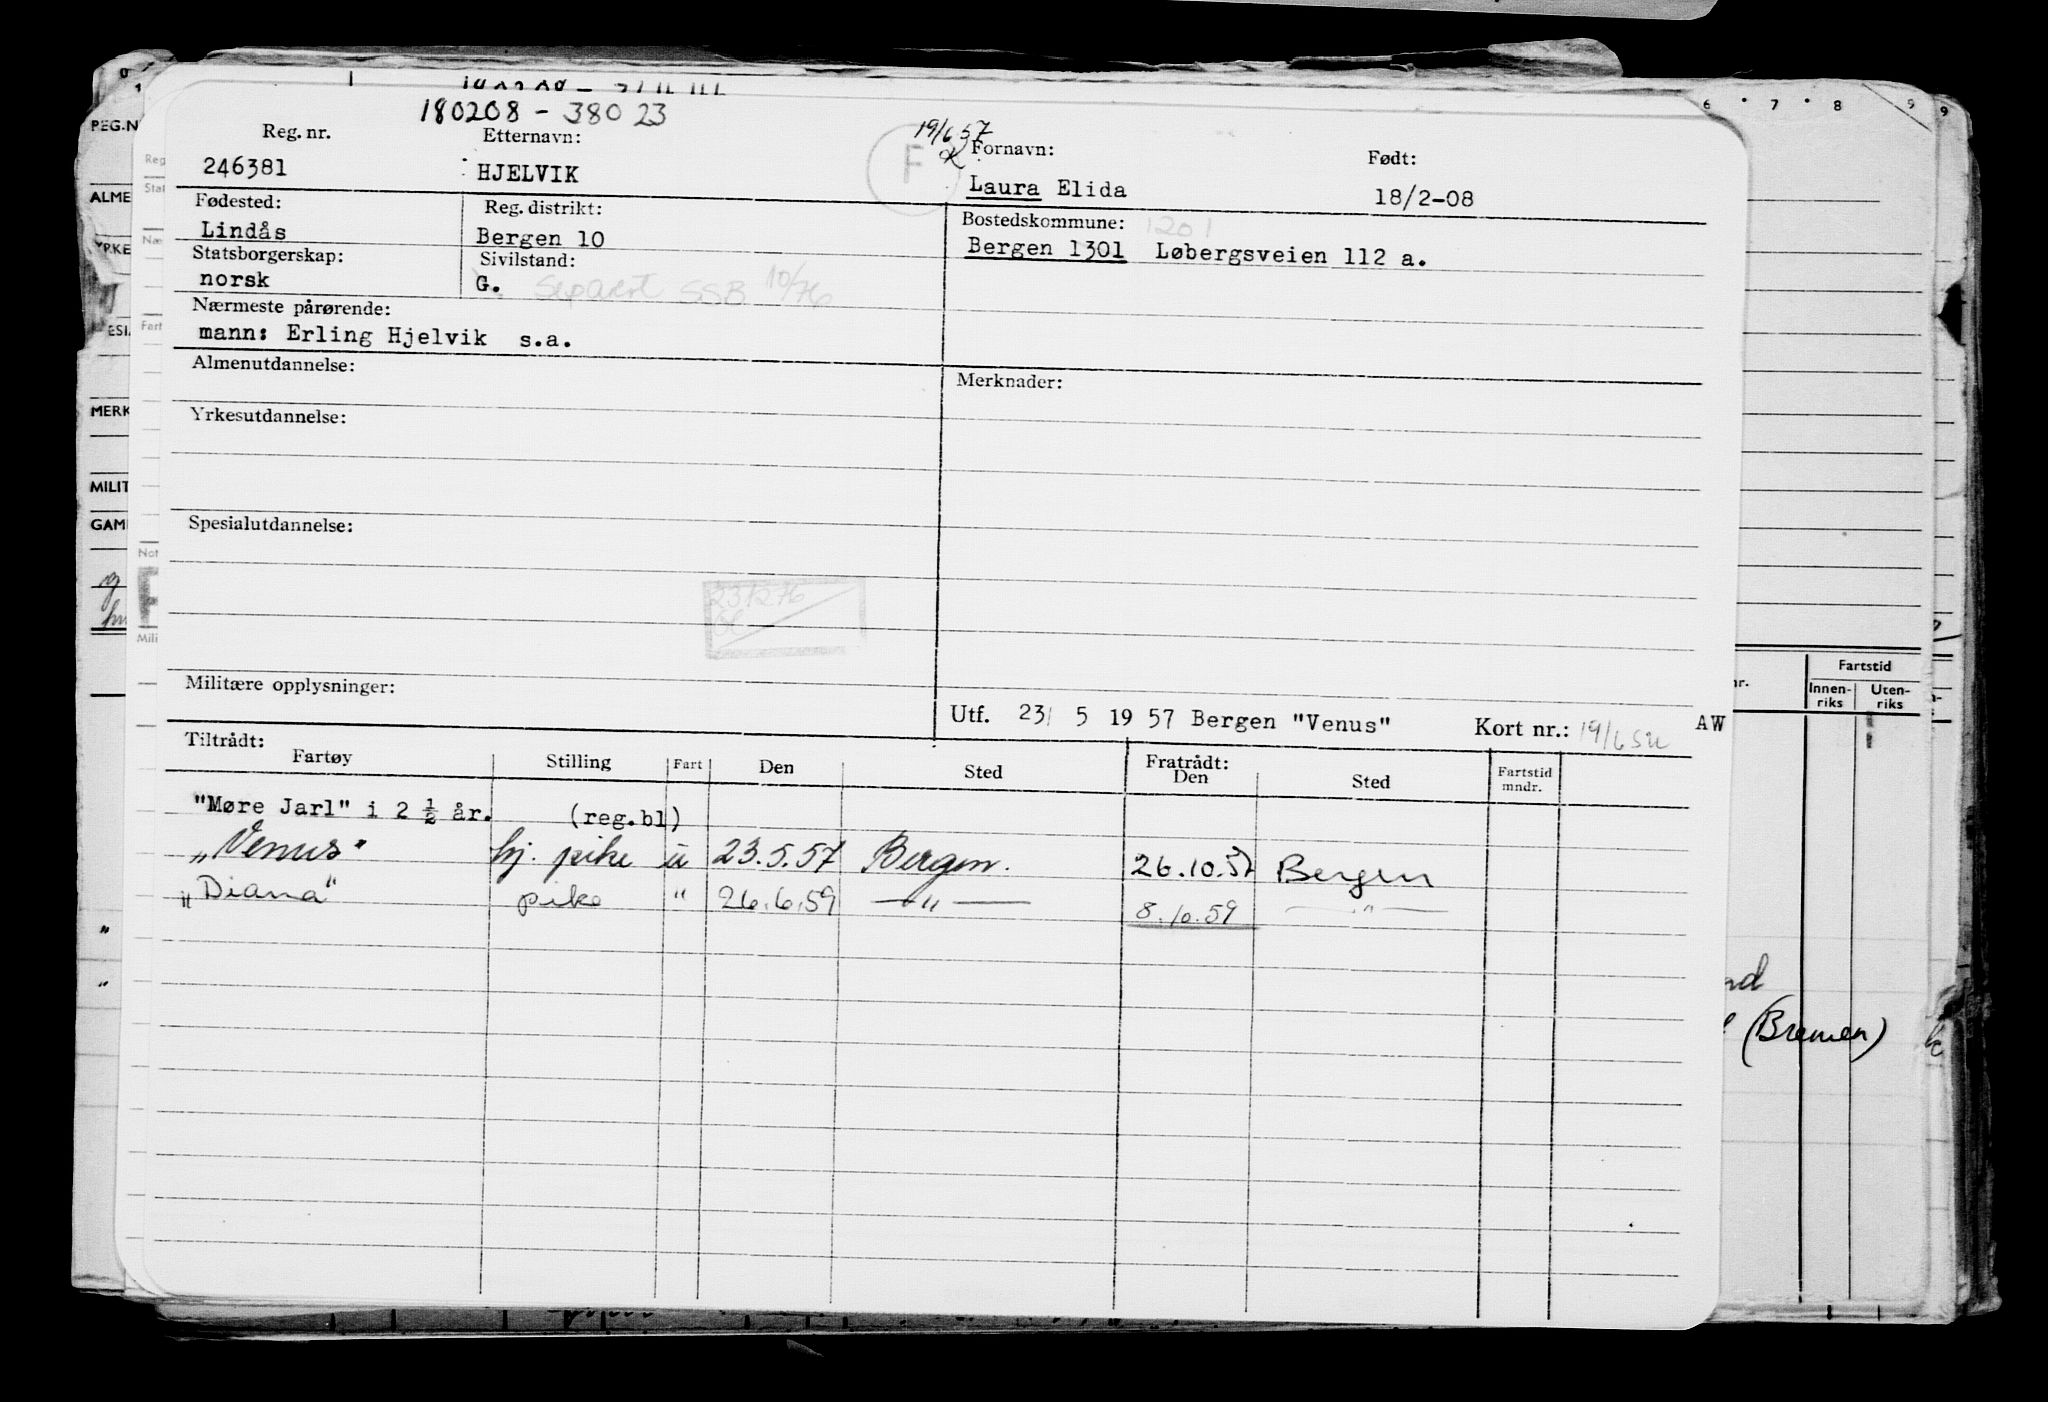 180208 - 38023
19/6 57
Reg. nr. Etternavn: F Fornavn: Født:
246381 HJELVIK Laura Elida 18/2-08
Fødested: Reg. distrikt: Bostedskommune: 1201
Lindås Bergen 10 Bergen 1301 Løbergsveien 112 a.
Statsborgerskap: Sivilstand:
norsk G. Separert SSB 10/76
Nærmeste pårørende:
mann: Erling Hjelvik s.a.
Almenutdannelse: Merknader:
Yrkesutdannelse:
Spesialutdannelse:
231276
Militære opplysninger:
Utf. 23/ 5 19 57 Bergen "Venus" Kort nr.: AW
Tiltrådt: Fratrådt:
Fartøy Stilling Fart Den Sted Den Sted Fartstid mndr.
"Møre Jarl" i 2 ½ år. (reg.bl)
"Venus" hj. pike u 23.5.57 Bergen. 26.10.57 Bergen
"Diana" pike " 26.6.59 —"— 8.10.59 —"—
REG.N
ALME
YRKE
MERK
MILIT
GAM
Reg
Stat
Næ
Fart
Not
Mili
6 7 8 9 9
Fartstid
nr. Innen-riks Uten-riks
(Bremen)